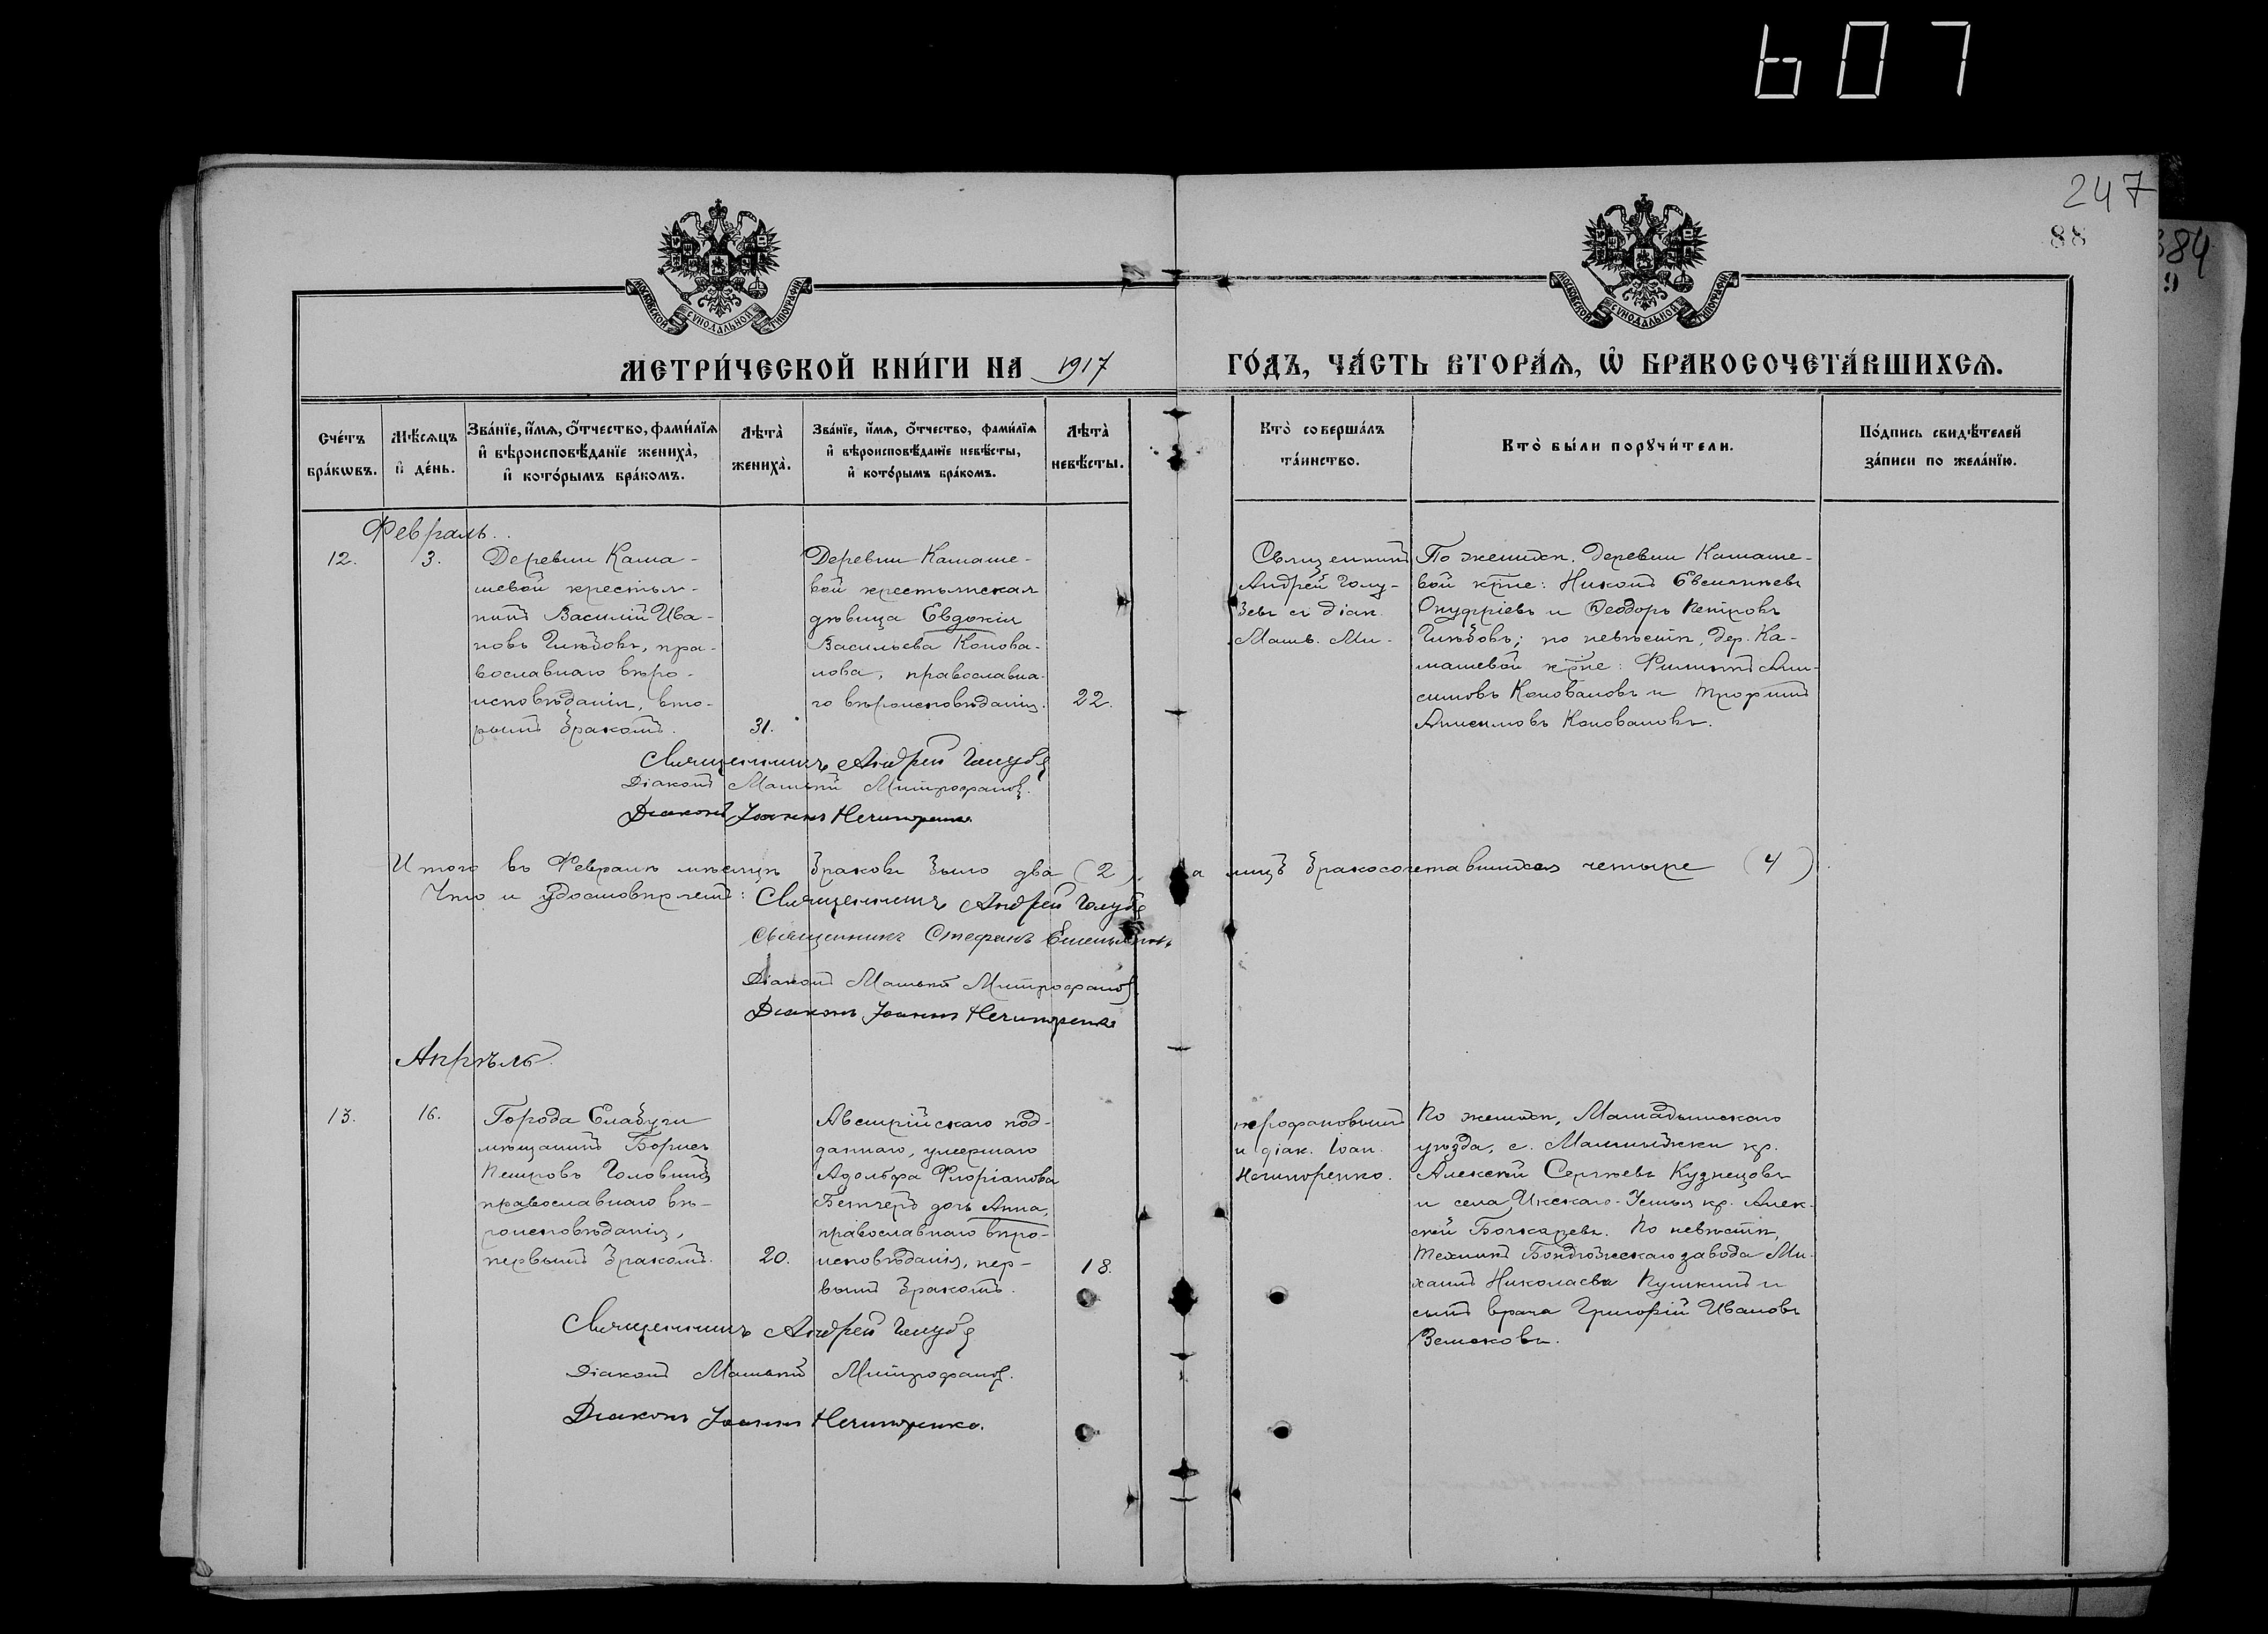 607
247
88
384
9
МОСКОВСКОЙ СѴНОДАЛЬНОЙ ТИПОГРАФІИ
МОСКОВСКОЙ СѴНОДАЛЬНОЙ ТИПОГРАФІИ
МЕТРИ́ЧЕСКОЙ КНИ́ГИ НА 1917 ГО́ДЪ, ЧА́СТЬ ВТОРА́Ѧ, Ѽ БРАКОСОЧЕТА́ВШИХСѦ.
Сче́тъ бра́кѡвъ.
Мѣ́сѧцъ и҆ де́нь.
Зва́нїе, и҆́мѧ, ѻ҆́тчество, фами́лїѧ и҆ вѣроисповѣ́данїе жениха̀, и҆ кото́рымъ бра́комъ.
Лѣта̀ жениха̀.
Зва́нїе, и҆́мѧ, ѻ҆́тчество, фами́лїѧ и҆ вѣроисповѣ́данїе невѣ́сты, и҆ кото́рымъ бра́комъ.
Лѣта̀ невѣ́сты.
Кто̀ соверша́лъ та́инство.
Кто̀ бы́ли порꙋчи́тели.
По́дпись свидѣ́телей за́писи по жела́нїю.
Февраль.
12.
3.
Деревни Кама-
шевой крестья-
нинъ Василій Ива-
новъ Глѣбовъ, пра-
вославнаго вѣро-
исповѣданія, вто-
рымъ бракомъ.
31.
Деревни Камаше-
вой крестьянская
дѣвица Евдокія
Васильева Конова-
лова, православна-
го вѣроисповѣданія.
22.
Священникъ
Андрей Голу-
бевъ съ діак.
Матв. Ми-
По женихѣ, деревни Камаше-
вой кр̃не: Никонъ Евсигнѣевъ
Онуфріевъ и Ѳеодоръ Петровъ
Глѣбовъ; по невѣстѣ, дер. Ка-
машевой кр̃не: Филиппъ Ани-
симовъ Коноваловъ и Трофимъ
Анисимовъ Коноваловъ.
Священникъ Андрей Голубе
Діаконъ Матѳей Митрофанов.
Діаконъ Іоаннъ Нечипоренко.
Итого въ Февралѣ мѣсяцѣ браковъ было два (2), а лицъ бракосочетавшихся четыре (4).
Что и удостовѣряемъ: Священникъ Андрей Голубе
Священникъ Стефанъ Емельяновъ
Діаконъ Матѳей Митрофанов.
Діаконъ Іоаннъ Нечипоренко
Апрѣль
13.
16.
Города Елабуги
мѣщанинъ Борисъ
Петровъ Головинъ
православнаго вѣ-
роисповѣданія,
первымъ бракомъ.
20.
Австрійскаго под-
даннаго, умершаго
Адольфа Флоріанова
дочь Анна,
православнаго вѣро-
исповѣданія, пер-
вымъ бракомъ.
18.
трофановымъ
и діак. Іоан.
Нечипоренко.
По женихѣ, Мамадышскаго
уѣзда, с. кр.
Алексѣй Сергѣевъ Кузнецовъ
и села Икскаго-Устья кр. Алек-
сѣй Бочкаревъ. По невѣстѣ,
техникъ Бондюжскаго завода Ми-
хаилъ Николаевъ Пушкинъ и
сынъ врача Григорій Ивановъ
Земсковъ.
Священникъ Андрей Голубе
Діаконъ Матѳей Митрофанов.
Діаконъ Іоаннъ Нечипоренко.